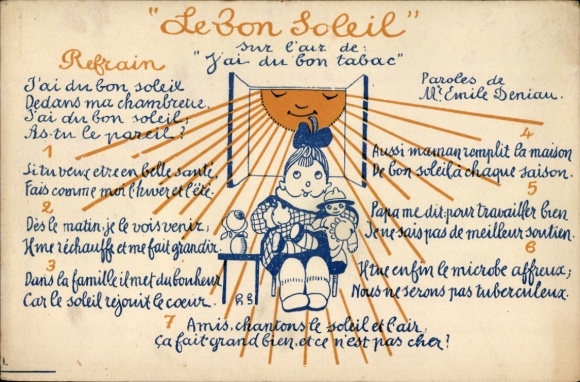 "Le bon Soleil"
sur l'air de:
"J'ai du bon tabac"
Paroles de
Mr. Emile Deniau.
Refrain
J'ai du bon soleil
Dedans ma chambrette.
J'ai du bon soleil,
As-tu le pareil?
1
Si tu veux etre en belle santé,
Fais comme moi l'hiver et l'été.
2
Dès le matin, je le vois venir,
Il me réchauffe et me fait grandir.
3
Dans la famille il met du bonheur
Car le soleil réjouit le cœur.
4
Aussi maman remplit la maison
De bon soleil à chaque saison.
5
Papa me dit: pour travailler bien
Je ne sais pas de meilleur soutien.
6
Il tue enfin le microbe affreux;
Nous ne serons pas tuberculeux.
7
Amis, chantons le soleil et l'air,
Ça fait grand bien, et ce n'est pas cher!